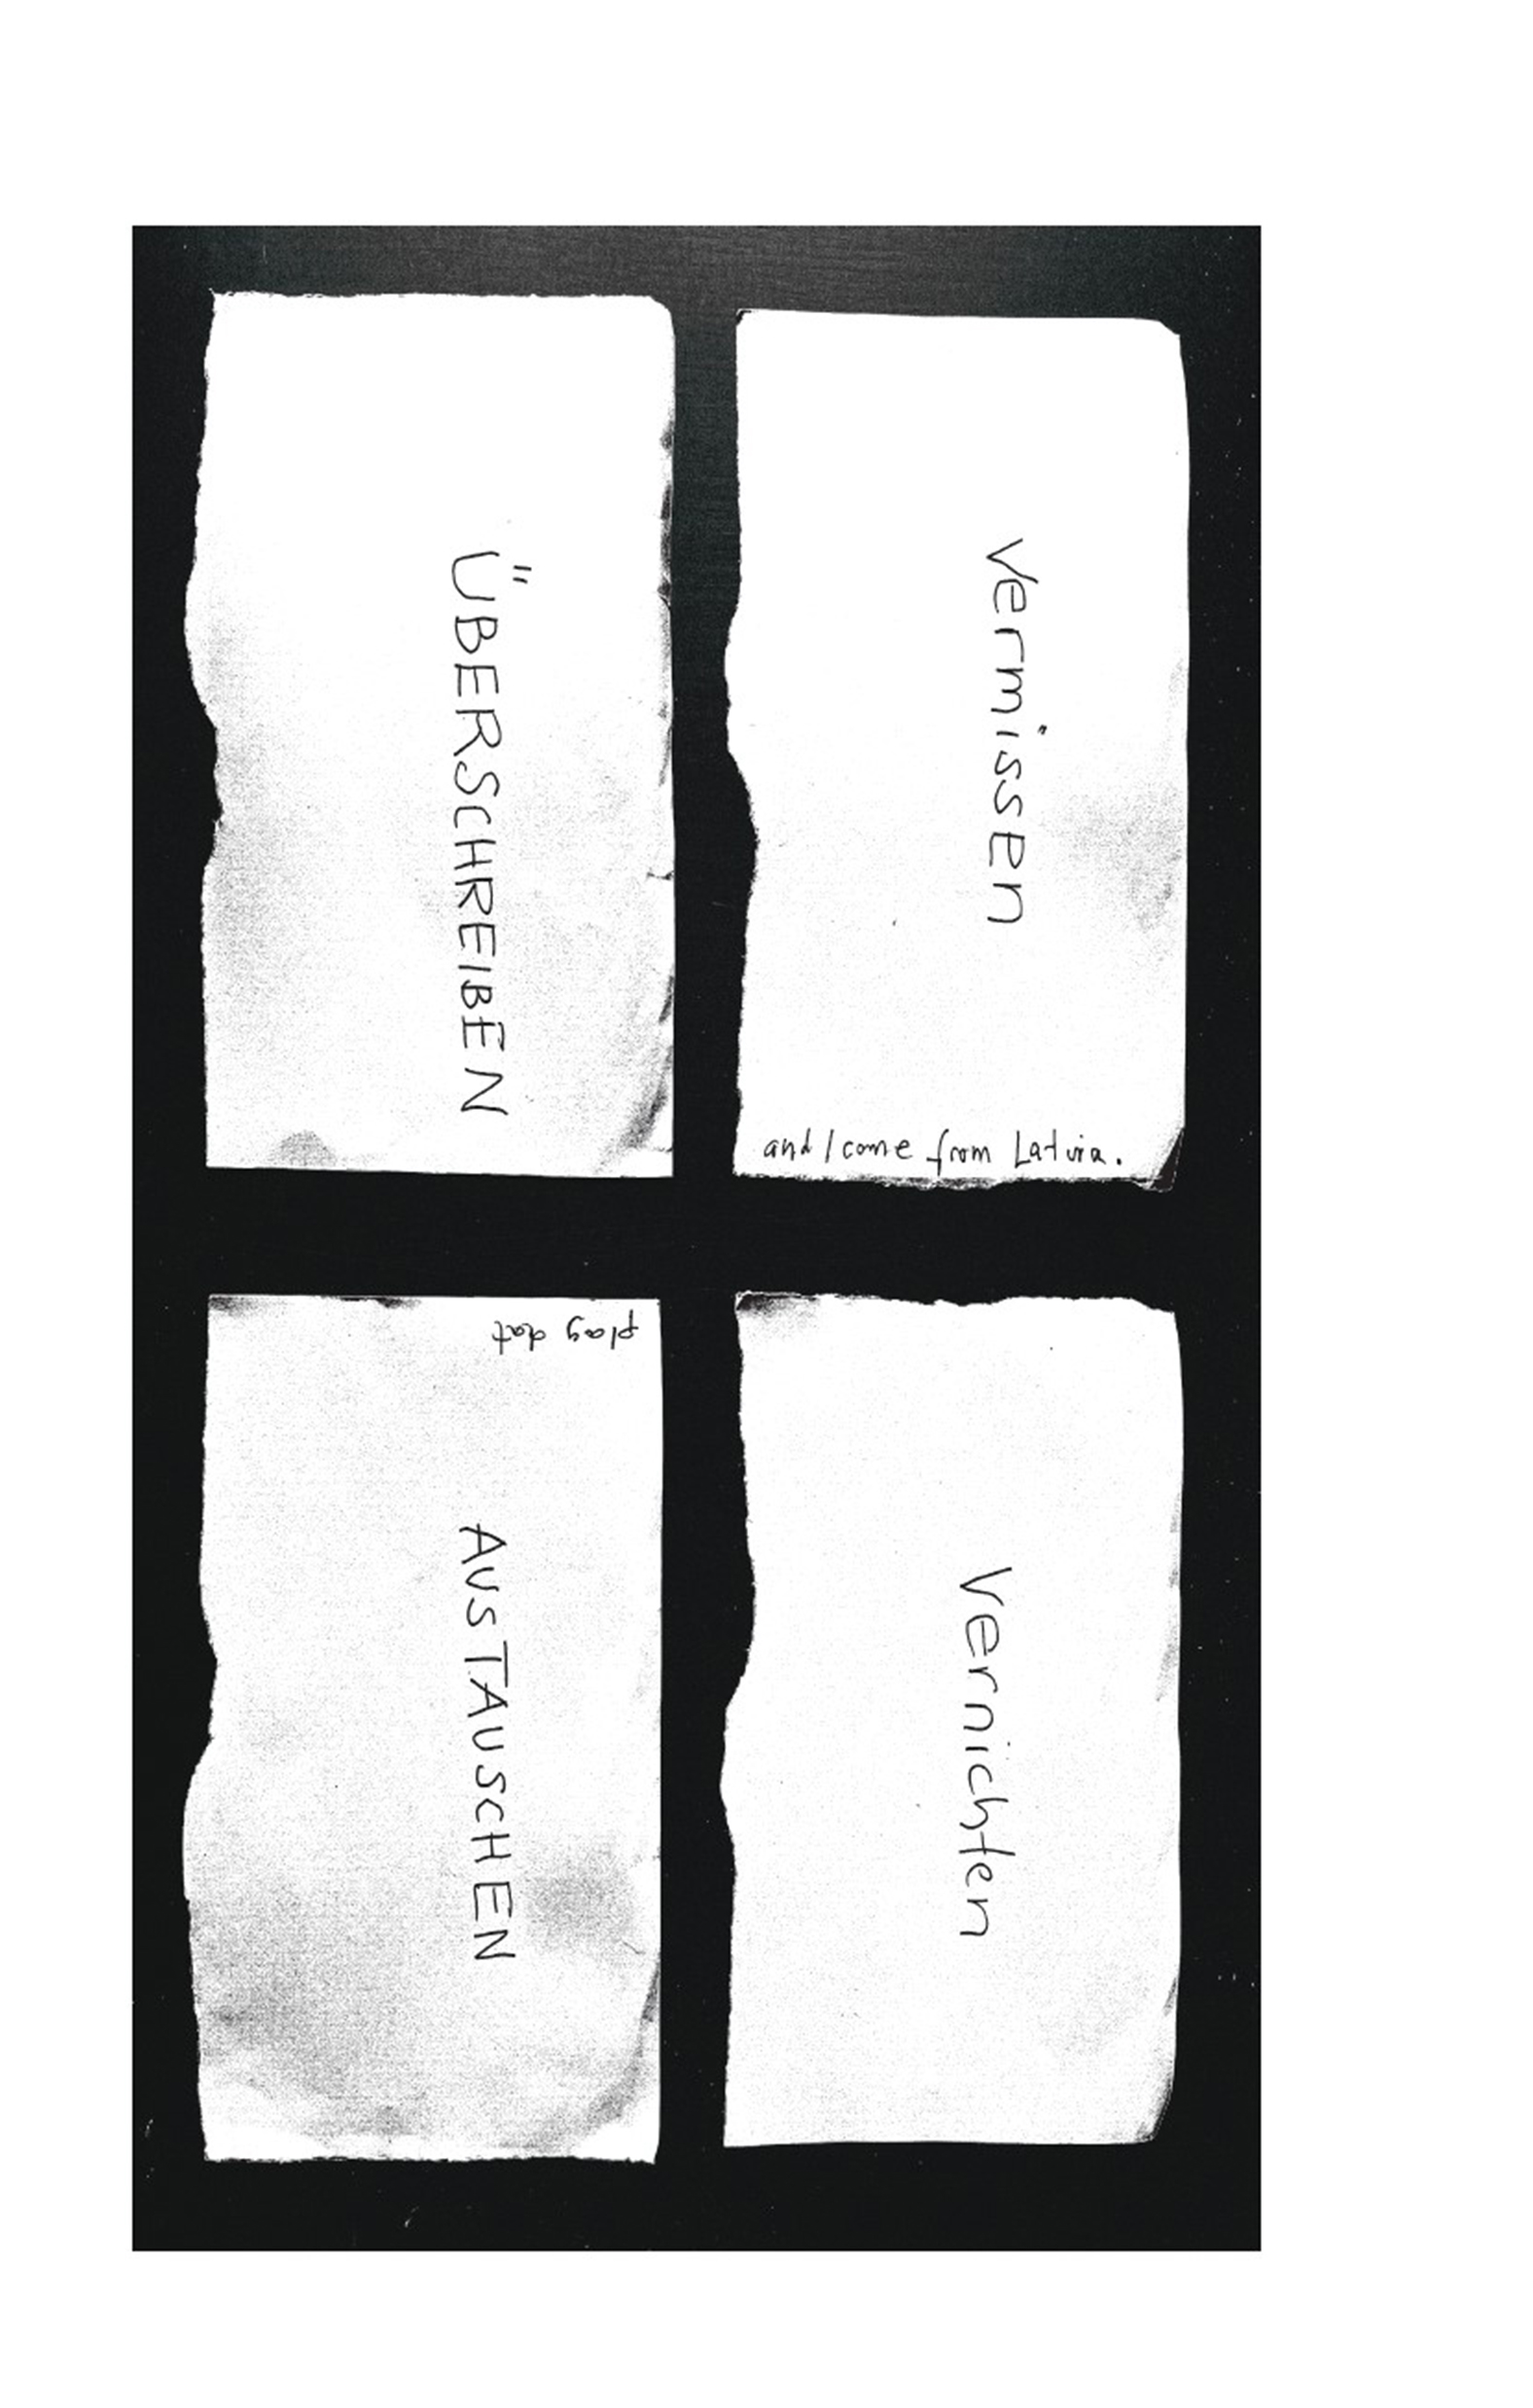 ÜBERSCHREIBEN
Vermissen
and I come from Latvia.
play dat
AUSTAUSCHEN
Vernichten